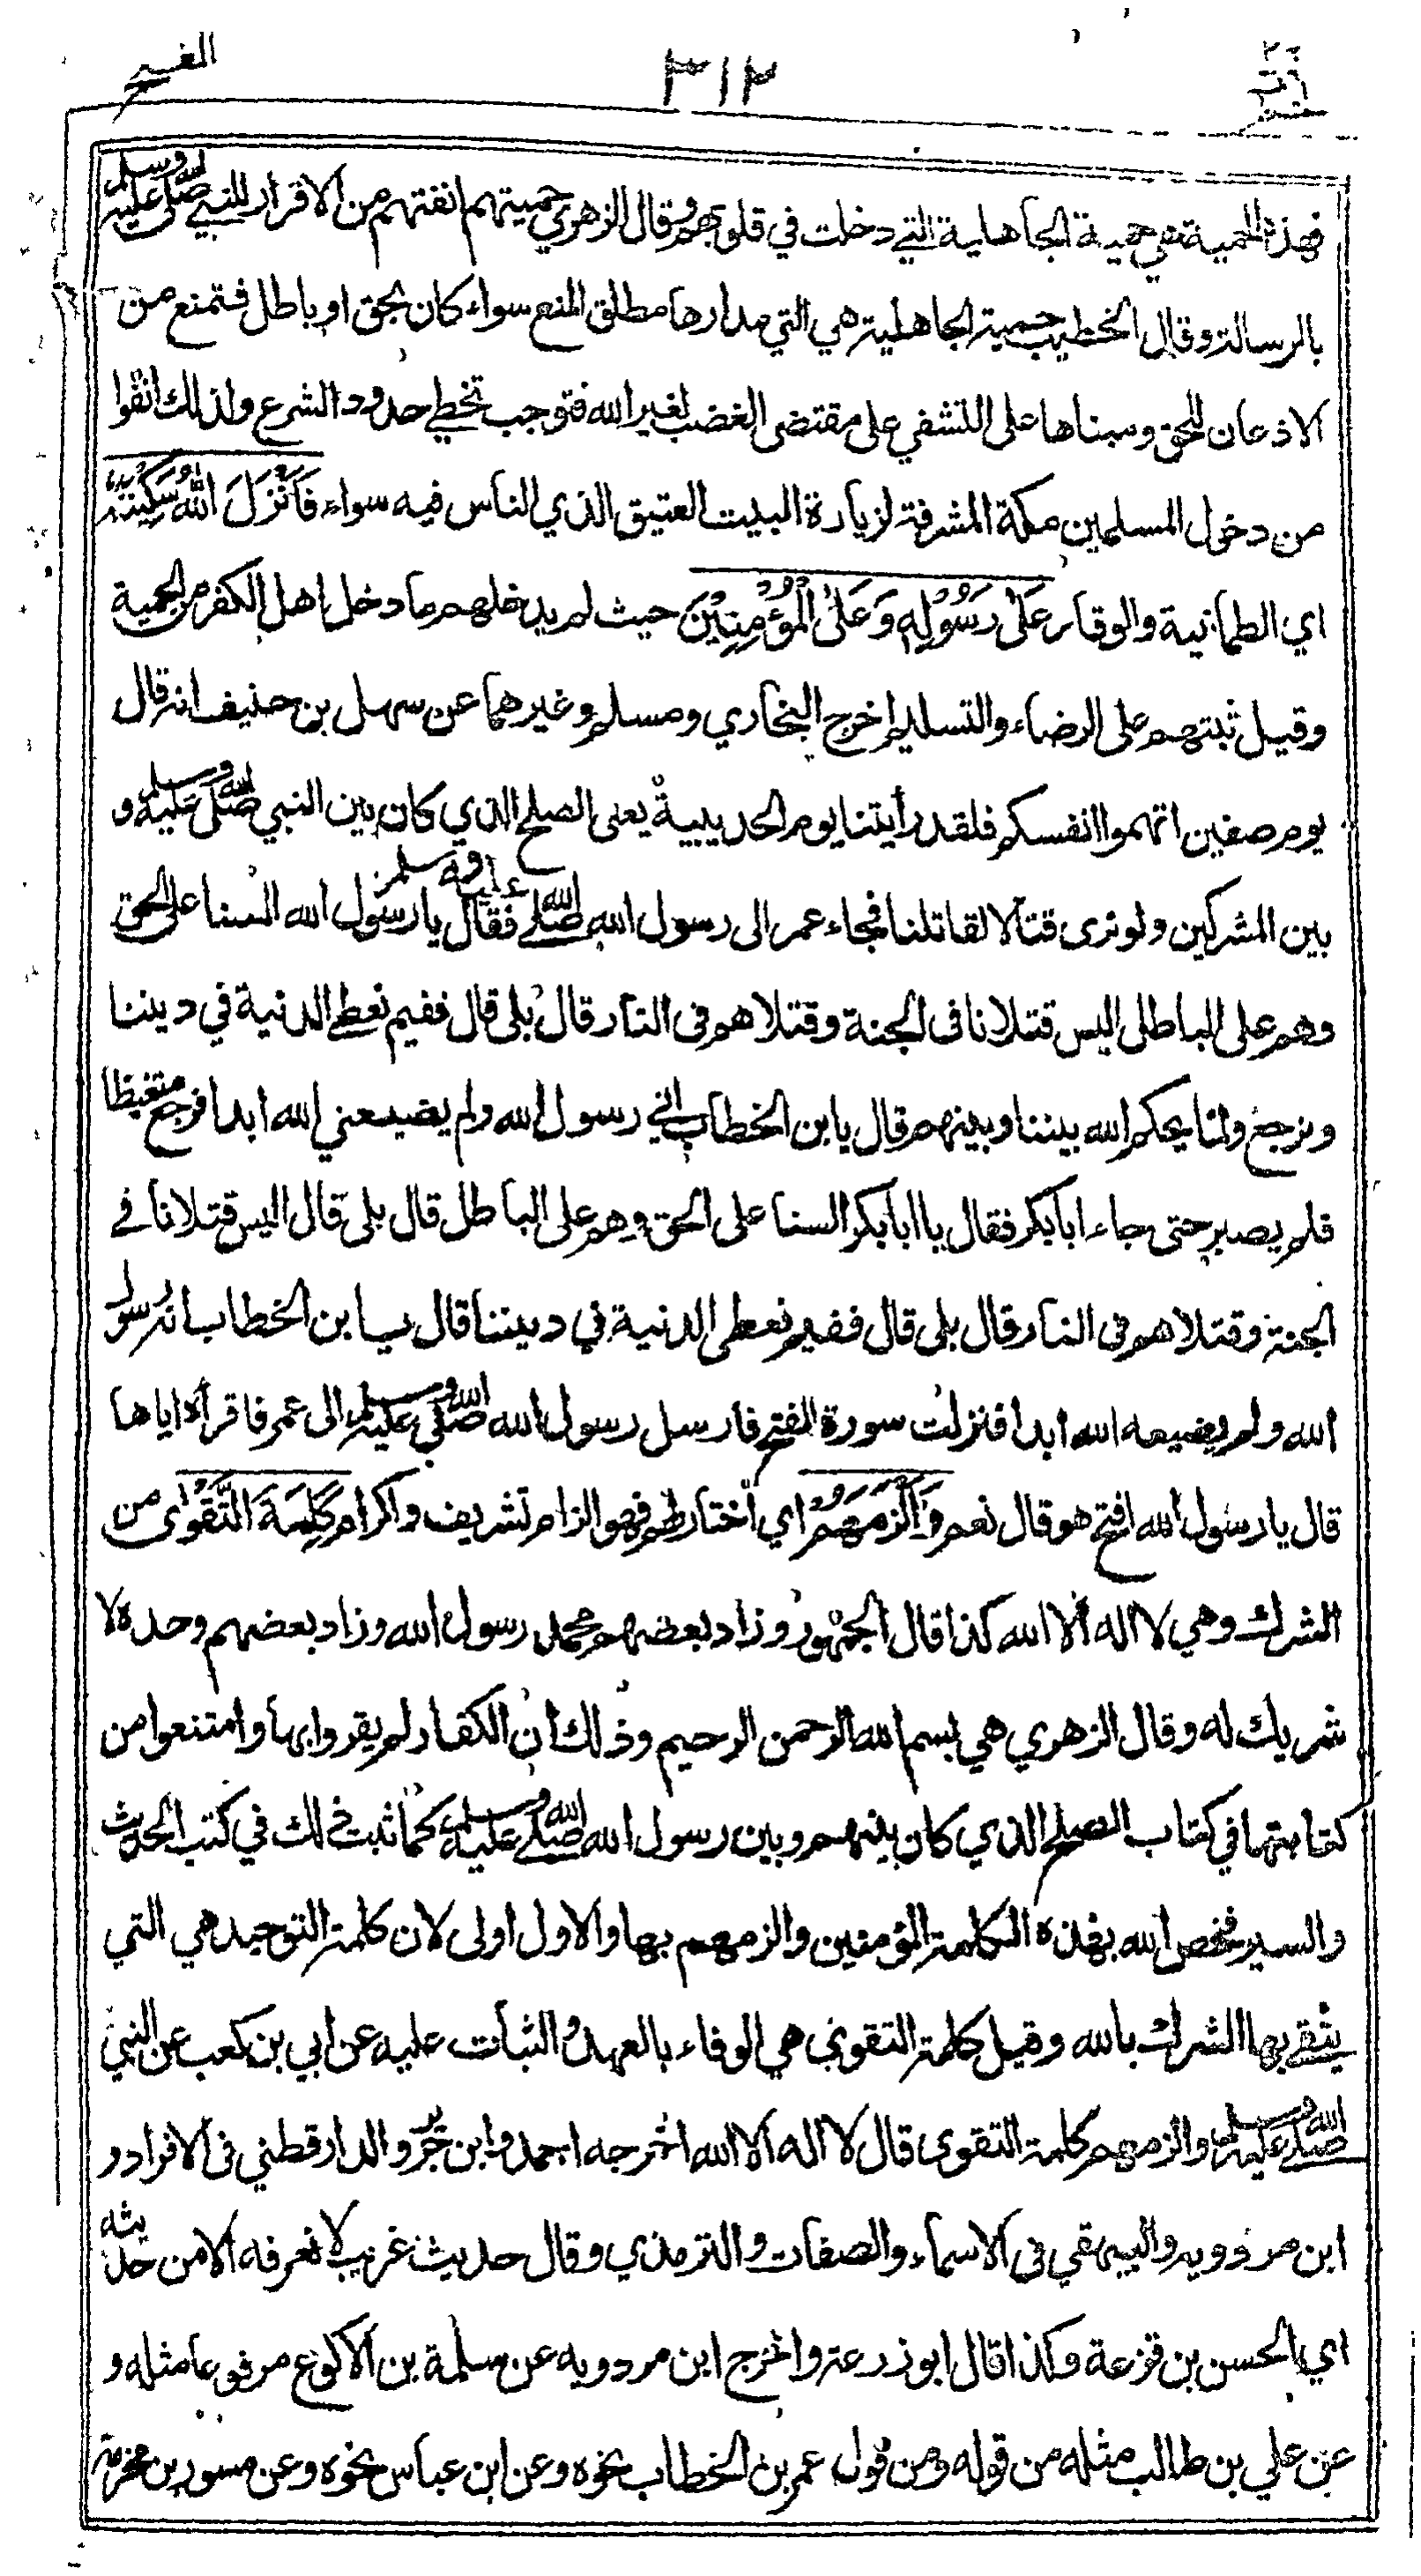 الفتح
٣١٢
فهذه الحمية هي حمية الجاهلية التي دخلت في قلوبهم وقال الزهري حميتهم انفتهم من الاقرار للنبي صلى الله عليه وسلم
بالرسالة وقال الخطيب حمية الجاهلية هي التي مدارها مطلق المنع سواء كان بحق او باطل فتمنع من
الاذعان للحق ومبناها على التشفي على مقتضى الغضب لغير الله فتوجب تخطي حدود الشرع ولذلك انفوا
من دخول المسلمين مكة المشرفة لزيارة البيت العتيق الذي الناس فيه سواء فَأَنْزَلَ اللهُ سَكِيْنَتَهُ
اي الطمانينة والوقار عَلَى رَسُوْلِهِ وَعَلَى الْمُؤْمِنِيْنَ حيث لم يدخلهم ما دخل اهل الكفر من الحمية
وقيل ثبتهم على الرضاء والتسليم اخرج البخاري ومسلم وغيرهما عن سهل بن حنيف انه قال
يوم صفين اتهموا انفسكم فلقد رأيتنا يوم الحديبية يعنى الصلح الذي كان بين النبي صلى الله عليه وسلم و
بين المشركين ولو نرى قتالا لقاتلنا فجاء عمر الى رسول الله صلى الله عليه وسلم فقال يا رسول الله السنا على الحق
وهم على الباطل اليس قتلانا فى الجنة وقتلاهم فى النار قال بلى قال ففيم نعطي الدنية في ديننا
ونرجع ولما يحكم الله بيننا وبينهم قال يا ابن الخطاب اني رسول الله ولم يضيعني الله ابدا فرجع متغيظا
فلم يصبر حتى جاء ابا بكر فقال يا ابا بكر السنا على الحق وهم على الباطل قال بلى قال اليس قتلانا في
الجنة وقتلاهم فى النار قال بلى قال ففيم نعطى الدنية في ديننا قال يا ابن الخطاب انه رسول
الله ولم يضيعه الله ابدا فنزلت سورة الفتح فارسل رسول الله صلى الله عليه وسلم الى عمر فاقرأه اياها
قال يا رسول الله افتح هو قال نعم وَأَلْزَمَهُمْ اي اختار لهم فهو الزام تشريف واكرام كَلِمَةَ التَّقْوٰى من
الشرك وهي لا اله الا الله كذا قال الجمهور وزاد بعضهم محمد رسول الله وزاد بعضهم وحده لا
شريك له وقال الزهري هي بسم الله الرحمن الرحيم وذلك ان الكفار لم يقروا بها وامتنعوا من
كتابتها في كتاب الصلح الذي كان بينهم وبين رسول الله صلى الله عليه وسلم كما ثبت ذلك في كتب الحديث
والسير فخص الله بهذه الكلمة المؤمنين والزمهم بها والاول اولى لان كلمة التوحيد هي التي
يتقى بها الشرك بالله وقيل كلمة التقوى هي الوفاء بالعهد والثبات عليه عن ابي بن كعب عن النبي
صلى الله عليه وسلم والزمهم كلمة التقوى قال لا اله الا الله اخرجه احمد وابن جرير والدارقطني فى الافراد و
ابن مردويه والبيهقي فى الاسماء والصفات والترمذي وقال حديث غريب لا نعرفه الا من حديثه
اي الحسن بن قزعة وكذا قال ابو زرعة واخرج ابن مردويه عن سلمة بن الاكوع مرفوعا مثله و
عن علي بن طالب مثله من قوله ومن قول عمر بن الخطاب نحوه وعن ابن عباس نحوه وعن مسور بن مخرمة